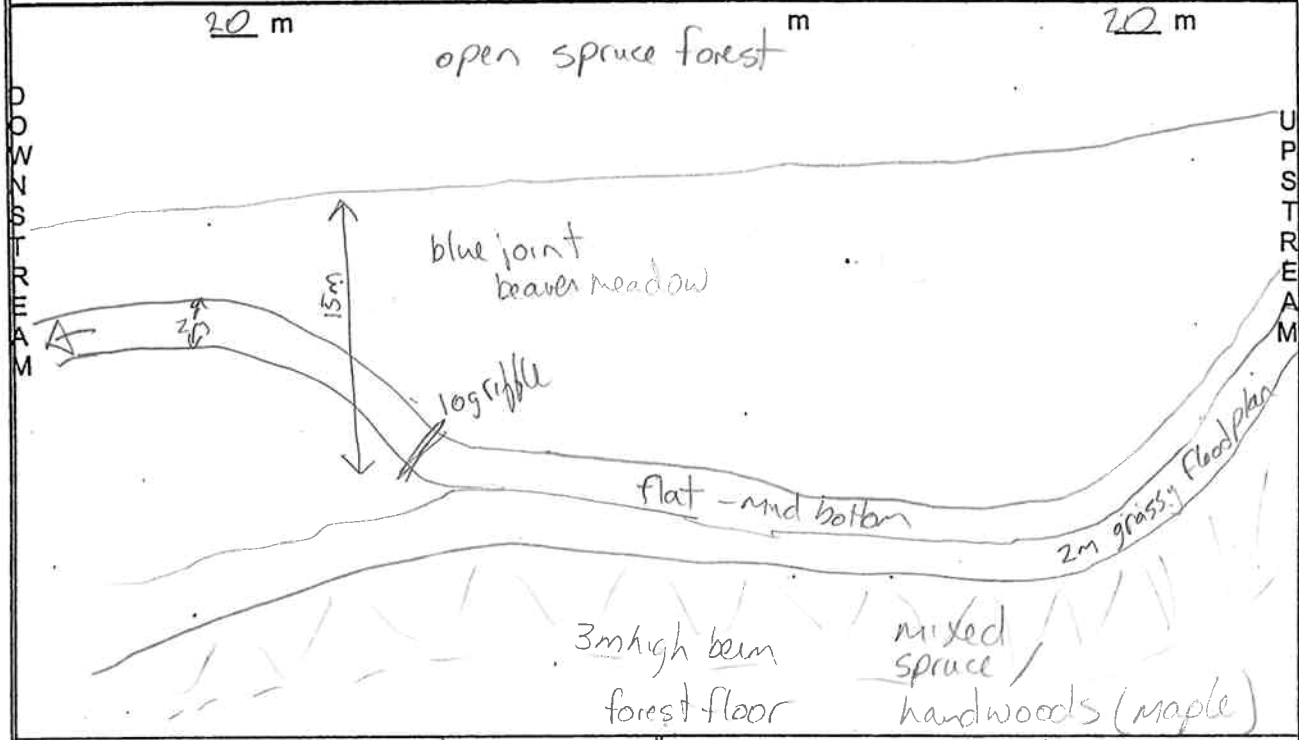 20 m
m
20 m
open spruce forest
DOWNSTREAM
UPSTREAM
blue joint
beaver meadow
15m
2m
log riffle
flat - mud bottom
2m grassy floodplan
3m high beam
forest floor
mixed
spruce /
hardwoods (maple)